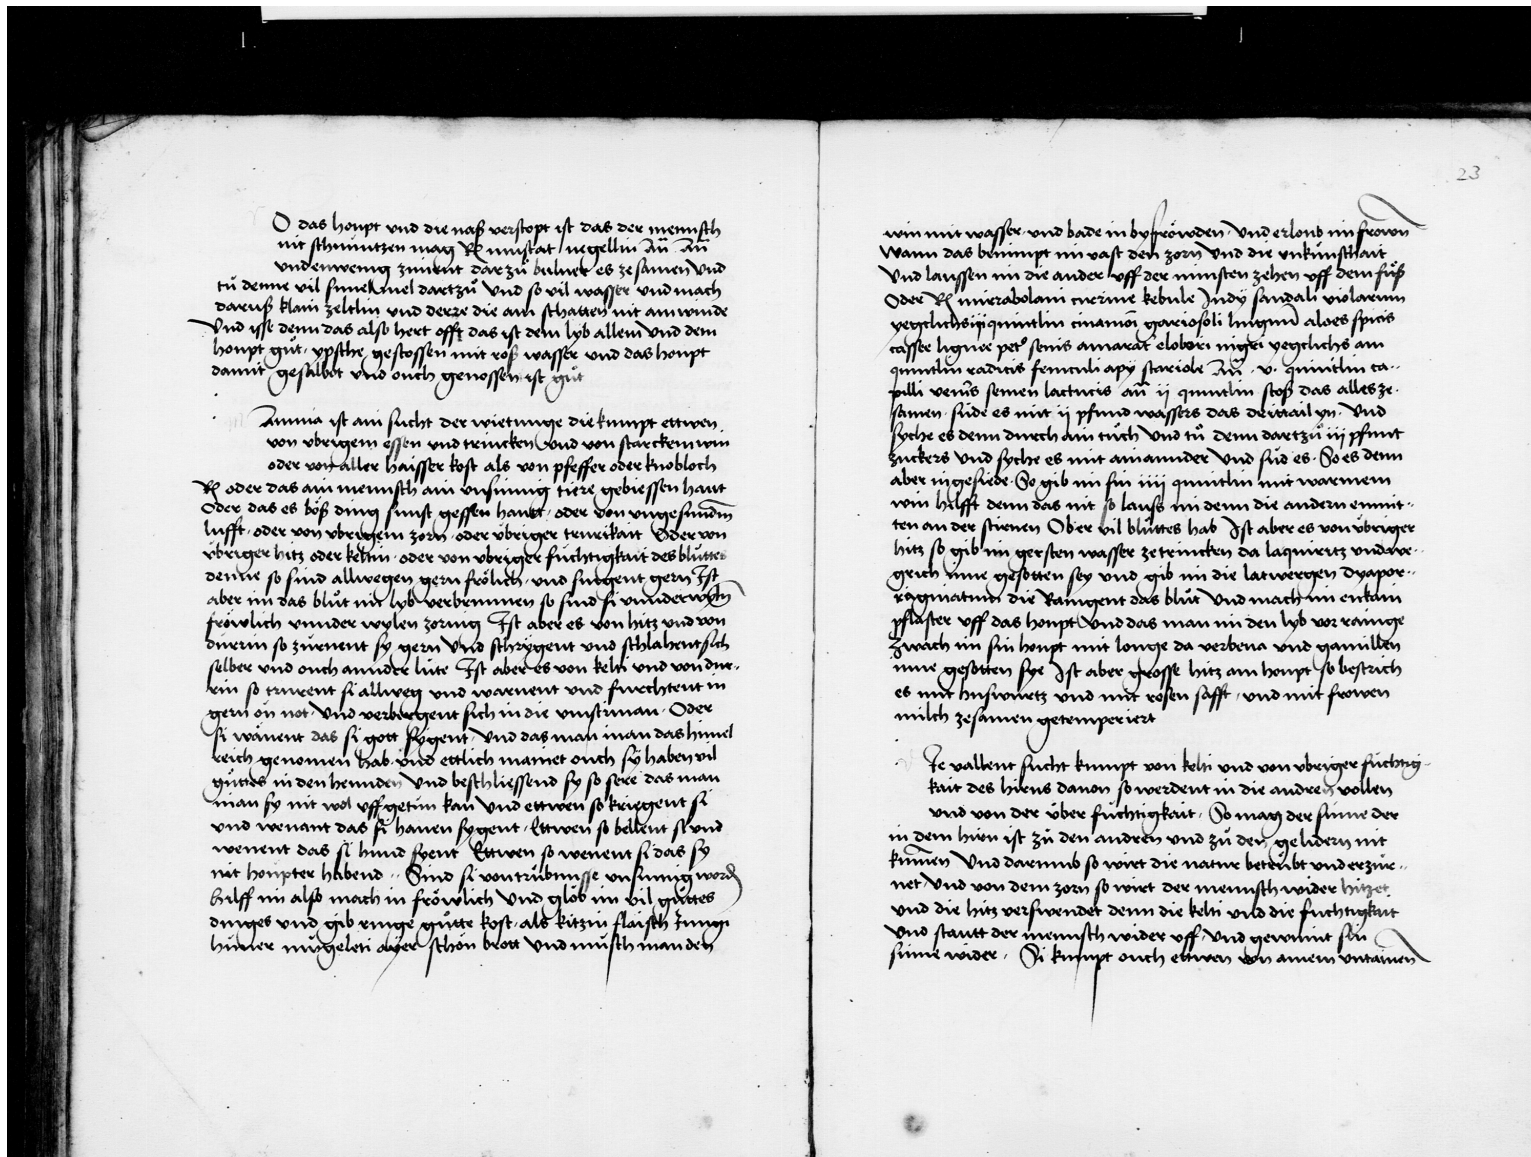 O das houpt vnd die naß verstopt ist das der mennsch
nit schnúntzen mag Rx muscat negellin añ . Añ
vnd ein wenig zimint dar zů buluer es ze samen vnd
tů denne vil simelmel dartzů vnd so vil wasser vnd mach
daruß klain zeltlin vnd derre die am schatten nit am winde
Vnd isse denn das also hert offt das ist dem lyb allem vnd dem
houpt gůt · ypsche gestossen mit roß wasser vnd das houpt
damit gesalbet vnd ouch genossen ist gůt
Amnia ist ain sucht der wietunge die kumpt ettwen
von vbrigem essen vnd trincken vnd von starckem win
oder von aller haisser kost als von pfeffer oder knobloch
Rx oder das ain mennsch ain vnsinnig tiere gebiessen haut
Oder das es böß ding sunst gessen hautt · oder von vngesundem̄
lufft · oder von vbrigem zorn · oder úbriger trurikait Oder von
vbriger hitz oder keltin · oder von vbriger fúchtigkait des blůttes
denne so sind allwegen gern frölich · vnd singent gern Ist
aber im das blůt mit lyb verbrunnen so sind si vnnder wyln
fröwlich vnnder wylen zornig Ist aber es von hitz vnd von
dúrrin so zúrnent sy gern vnd schrygent vnd schlahent sich
selber vnd ouch annder lúte Ist aber es von kelti vnd von dúr-
rin so trurent si allweg vnd warnent vnd furchtent in
gern on not · vnd verbergent sich in die vinstrinan · Oder
si wänent das si gott sygent · vnd das man inan das himel
reich genomen hab · vnd ettlich mainet ouch sy haben vil
gůttes in den hennden vnd beschliessend sy so sere das man
man sy nit wol vff getůn kan vnd ettwen so kriegent si
vnd wenant das si hanen sygent · Ettwen so bellent si vnd
wenent das si hund syent Ettwen so wenent si das sy
nit hoúpter habend ·· Sind si von trúbnisse vnsinnig word
hilff im also mach in fröwlich vnd glöb im vil gůttes
dinges vnd gib ringe gůtte kost · als kitzin flaisch Jungi
húner núwgeleti ayer schön brott vnd můsch man den
23
win mit wasser · vnd bade in by fröwden · vnd erloub im frowen̄
wann das benimpt im vast den zorn vnd die vnkúnschait
Vnd laussen im die ander vff der minsten zehen vff dem fůß
Oder Rx mirrabolani citrine kebule Indy sandali violarum
yegclichs iij quintlin cinamoi gariofoli lingnū aloes spicis
cassee lignee pet⁹ senis amarat elobori nigri yegclichs am
quintlin radicis feniculi apy scariole añ · v · quintlin ca-
pilli venis semen lactucis añ ij quintlin stoß das alles ze-
samen · súde es mit ij pfund wassers das drittail yn · vnd
syche es denn durch ain tůch vnd tů denn dartzů iij pfunt
zuckers vnd syche es mit ainannder vnd súd es · So es denn
aber in gesiede · So gib im sin iiij quintlin mit warmem
win hilfft denn das nit so lauss im denn die andern enmit-
ten an der stirnen Ob er vil blůttes hab Ist aber es von úbriger
hitz so gib im gersten wasser ze trincken da laquiritz vnd we-
grich inne gesotten sey vnd gib im die latwergen Dyapor-
rigmatum die Rainigent das blůt vnd mach im enkain
pflaster vff das houpt vnd das man im den lyb vor rainge
Zwach im sin houpt mit louge da verbena vnd gamillen
inne gesotten sye Ist aber grosse hitz am houpt so bestrich
es mit huswúrtz vnd mit rosen safft · vnd mit frowen
milch zesamen getemperiert
Je vallent sucht kumpt von kelti vnd von vbriger fúchtig-
kait des hirns dauon so werdent in die andren vollen
vnd von der úber fúchtigkait · So mag der sinne der
in dem hirn ist zů den andren vnd zů den gelidern nit
kumen Vnd darumb so wirt die natur betrúbt vnd erzúr-
net Vnd von dem zorn so wirt der mennsch wider hitzet
vnd die hitz verswendet denn die kelti vnd die fuchtigkait
vnd stautt der mennsch wider vff · vnd gewinnt sin
sinne wider · Si kumpt ouch ettwen von ainem vntainen